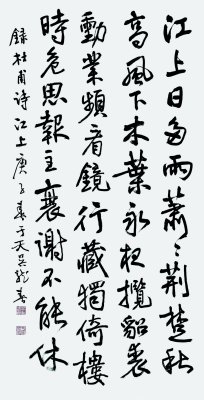 江上日多雨蕭〻荊楚秋
高風下木葉永夜攬貂裘
勳業頻看鏡行藏獨倚樓
時危思報主衰謝不能休
錄杜甫詩江上庚子